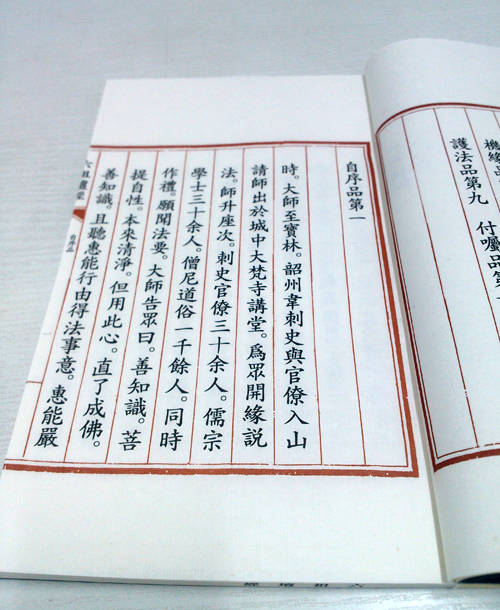 機緣品
護法品第九 付囑品第
自序品第一
時。大師至寶林。韶州韋刺史與官僚入山
請師出於城中大梵寺講堂。爲眾開緣說
法。師升座次。刺史官僚三十余人。儒宗
學士三十余人。僧尼道俗一千餘人。同時
作禮。願聞法要。大師告眾曰。善知識。菩
提自性。本來清淨。但用此心。直了成佛。
善知識。且聽惠能行由得法事意。惠能嚴
六祖壇經
自序品